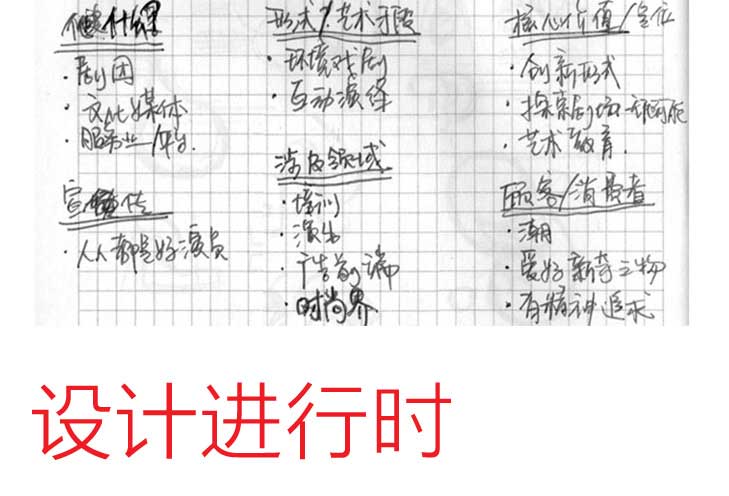 做什么
· 剧团
· 文化媒体
· 服务业/平台
宣传
· 人人都是好演员
形式/艺术手段
· 环境戏剧
· 互动演绎
涉及领域
· 培训
· 演出
· 广告前端
· 时尚界
核心价值/定位
· 创新形式
· 探索剧场
· 艺术教育
顾客/消费者
· 潮
· 爱好新奇之物
· 有精神追求
设计进行时